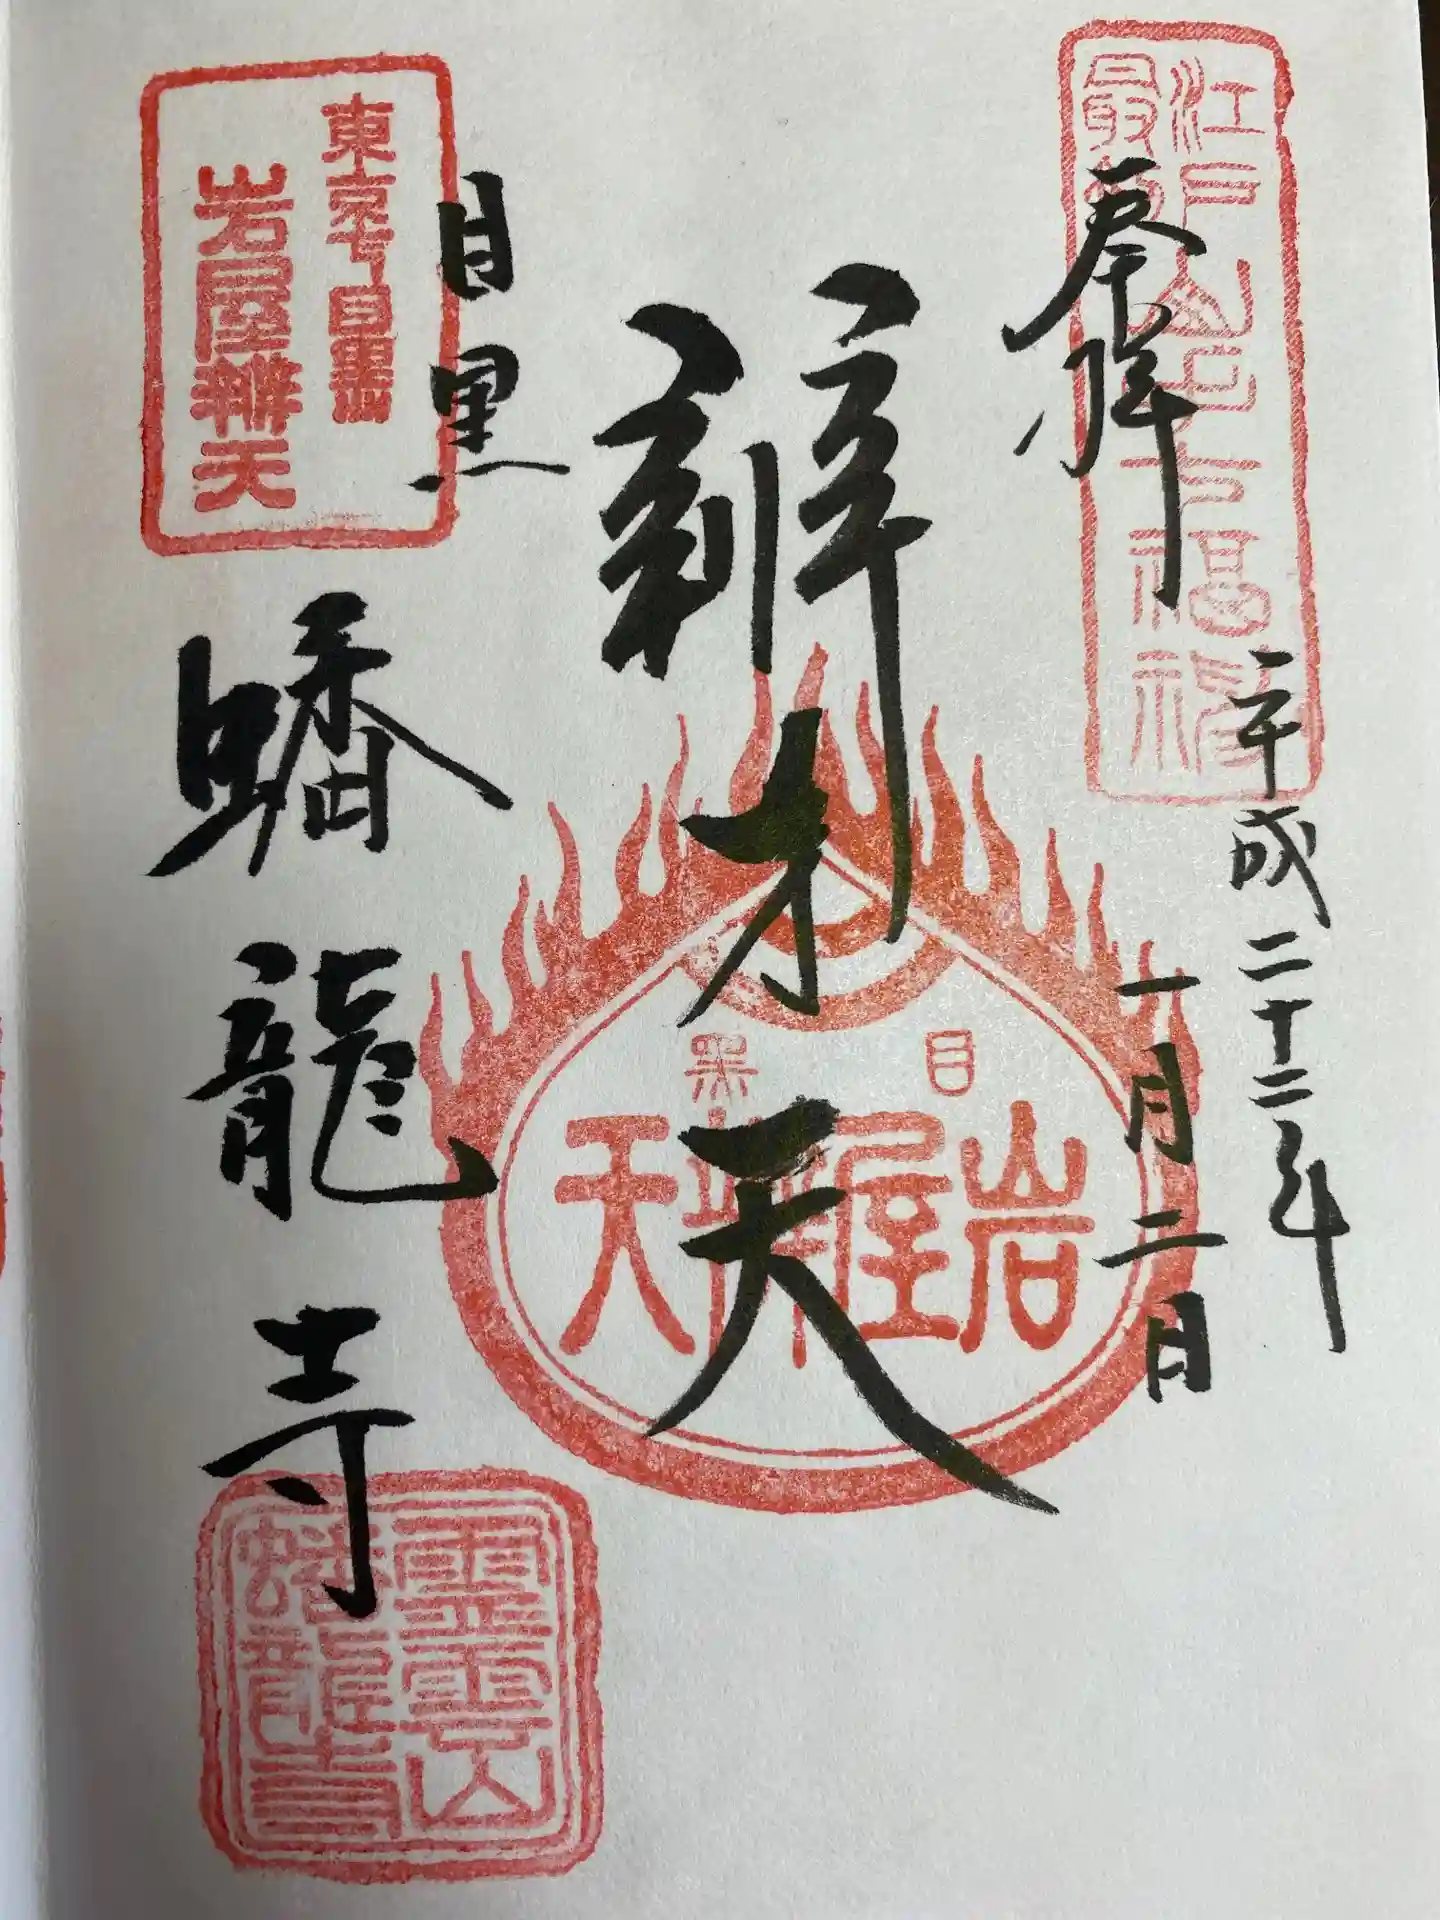 江戸最初山手七福神
奉拝
平成二十二年
一月二日
辨才天
目黒
岩屋辨天
目黒
蟠龍寺
東京下目黒
岩屋辨天
霊雲山
蟠龍寺